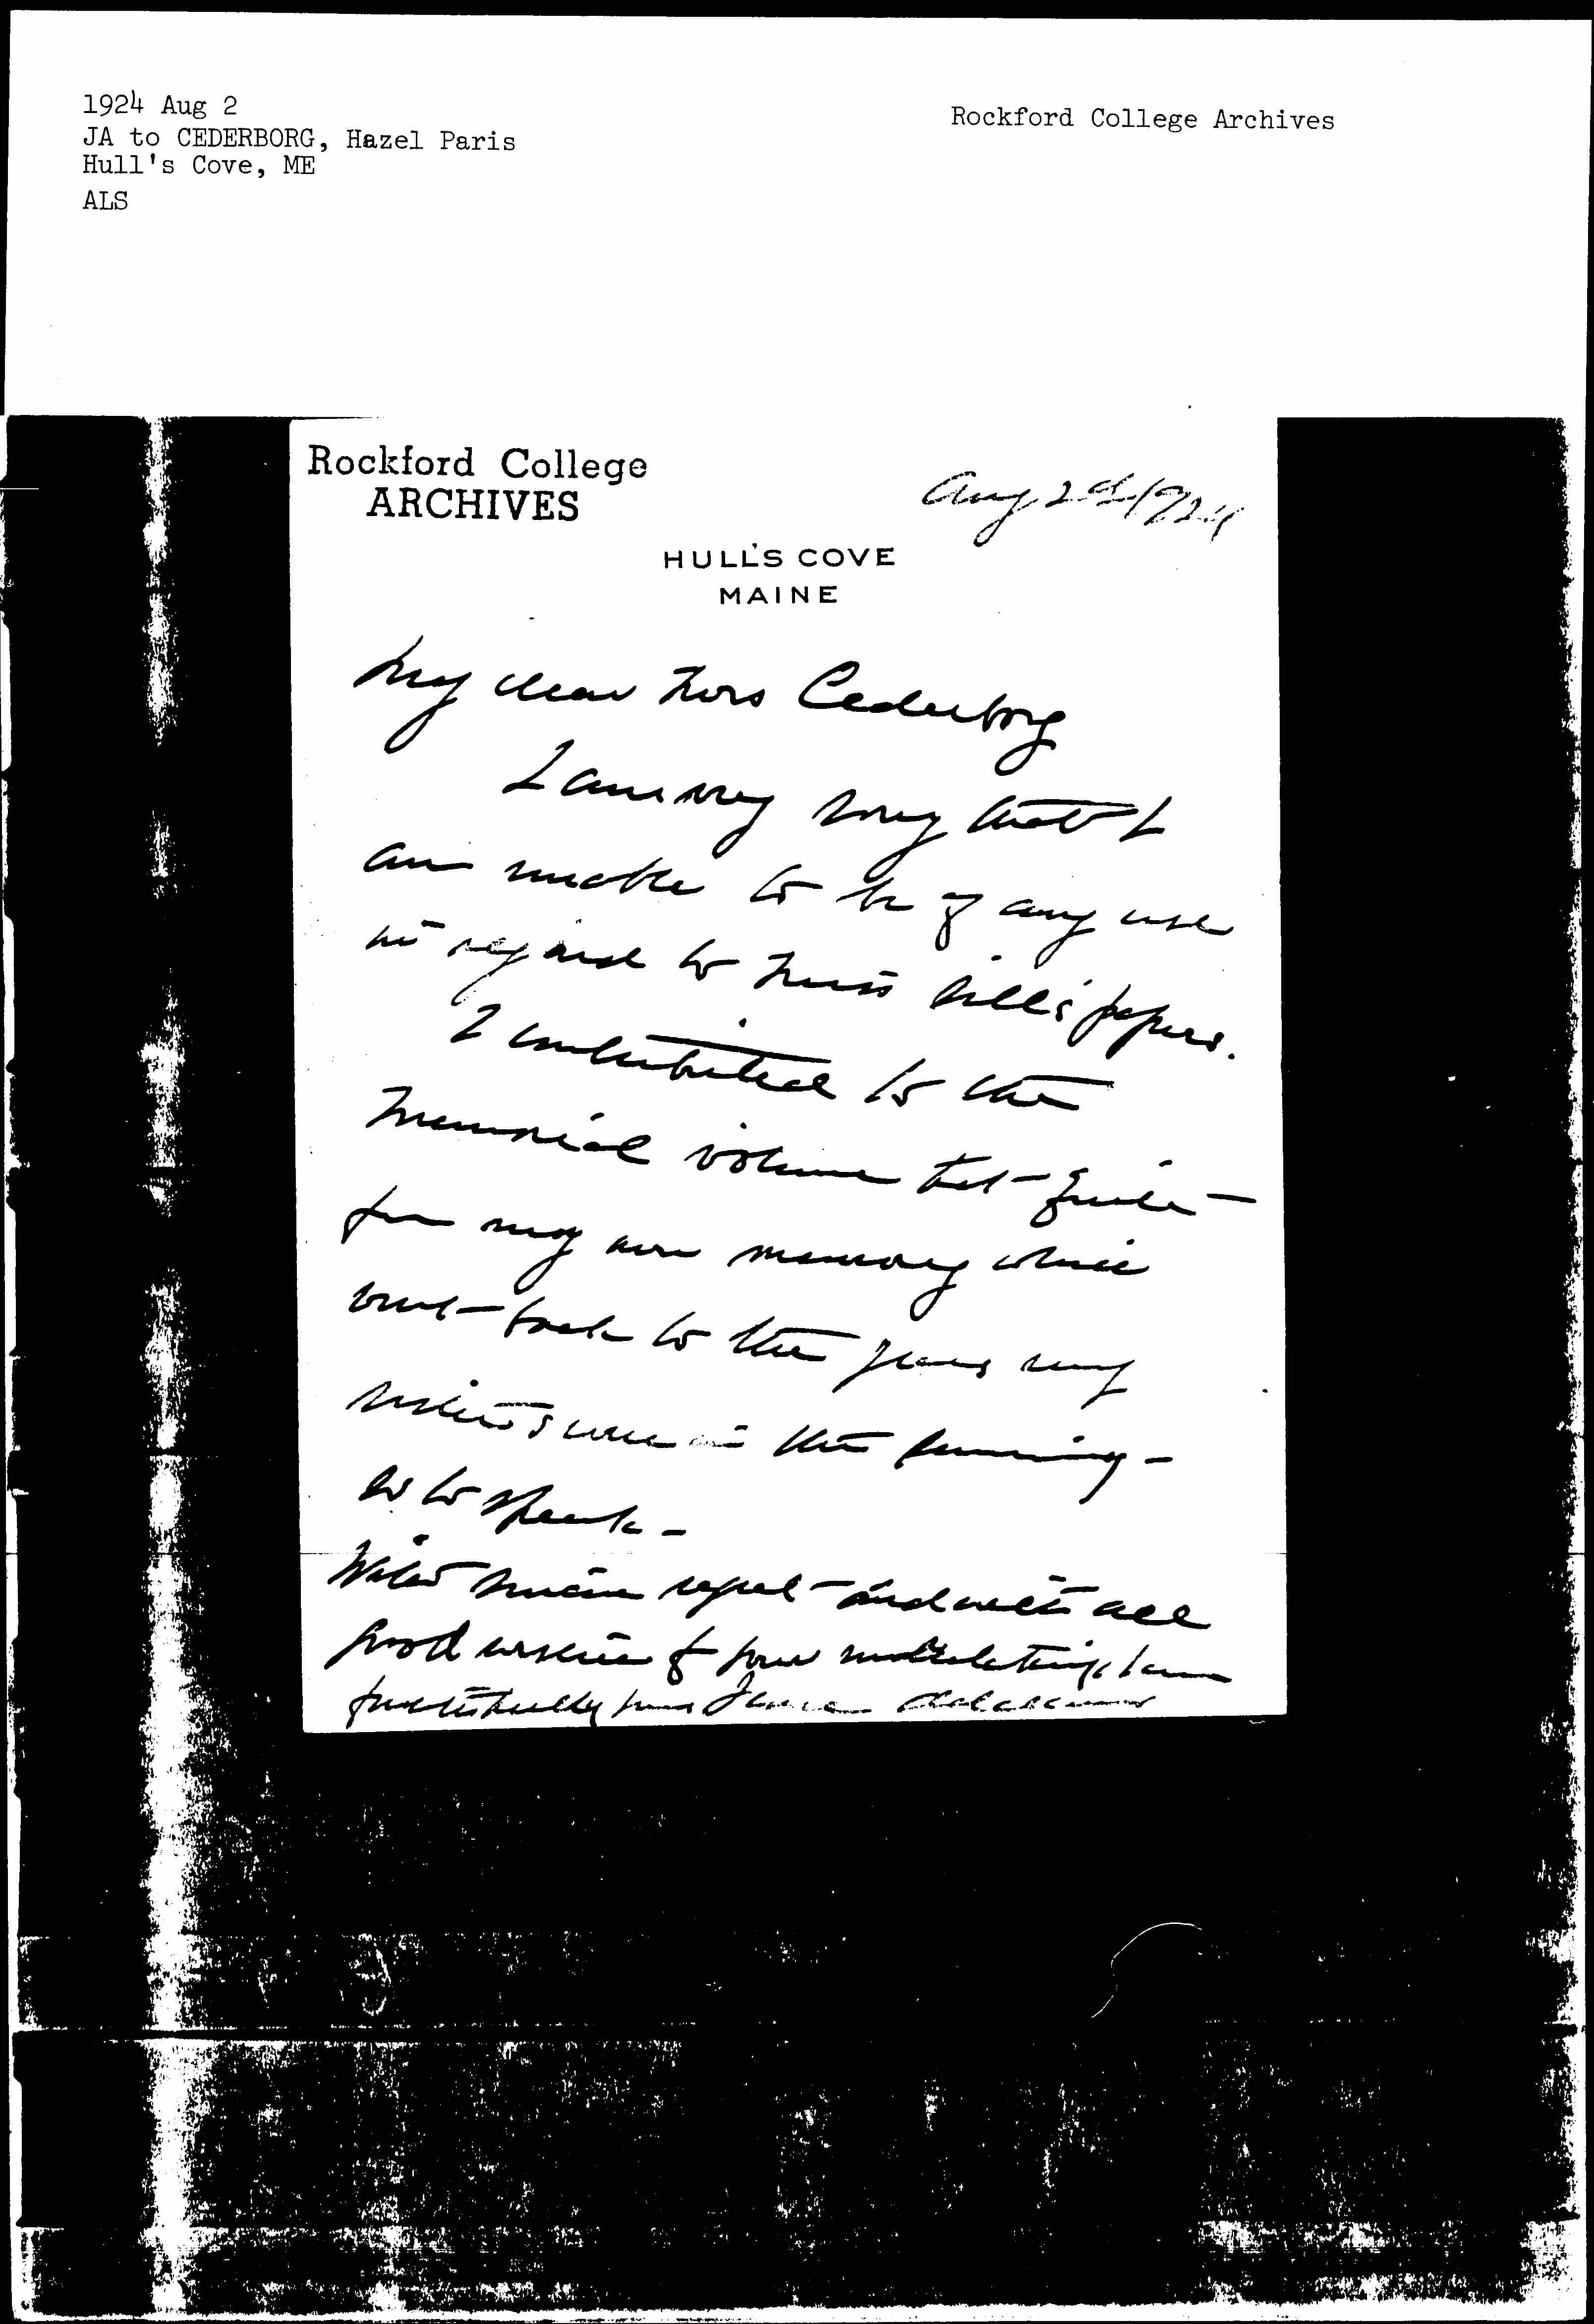 1924 Aug 2
JA to CEDERBORG, Hazel Paris
Hull's Cove, ME
ALS
Rockford College Archives
Rockford College
ARCHIVES
Aug 2d 1924
HULL'S COVE
MAINE
My dear Mrs Cederborg
I am very sorry that I
am unable to be of any use
in regard to Miss Sill's papers.
I contributed to the
Memorial volume but quite
from my own memory which
went back to the years my
sisters were in the Seminary -
so to speak -
With sincere regret and with all
good wishes for your undertaking I am
faithfully yours Jane Addams